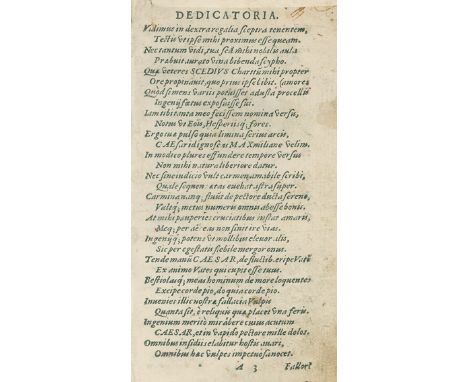 DEDICATORIA.
Vidimus in dextra regalia sceptra tenentem,
Tectus vt ipse mihi proximus esse queam.
Nec tantum vidi, tua sed mihi nobilis aula
Prabuit aurato vina bibenda scypho.
Quæ veteres SCEDIVS Chartiū mihi propter
Ore propinauit, quo prius ipse bibit. (amores
Quod si mens variis potuisset adusta procellis
Ingenij fœtus exposuisse sui.
Iam sibi tanta meo fecissem nomina versu,
Notus vt Eois, Hesperiisq; fores.
Ergo tua pulso qua limina serius arcis,
CAESar id ignosce MAXmiliane velim.
In modico plures effundere tempore versus
Non mihi naturæ liberiore datur.
Nec sine iudicio vult carmen amabile scribi,
Quale sequens ætas euehat astra super.
Carmina nanq; fluūt de pectore ducta sereno,
Vultq; metus numeris omnis abesse bonis.
At mihi pauperies cruciatibus instat amaris,
Meq; per aëreas non sinit ire vias.
Ingenijq; potens vt mollibus eleuor alis,
Sic per egestatis flebile mergor onus.
Tende manū CAESAR, de fluctib. eripe Vatē
Ex animo Vates qui cupit esse tuus.
Bestiolasq; meas hominum de more loquentes
Excipe corde pio, do quia corde pio.
Inuenies illic nostræ fallacia Vulpis
Quanta sit, è reliquis quæ placet vna feris.
Ingenium merito mirabere cuius acutum
CAESAR, et in vapido pectore mille dolos.
Omnibus insidiis elabitur hostis auari,
Omnibus hæc vulpes impetuosa nocet.
A 3 Fallere